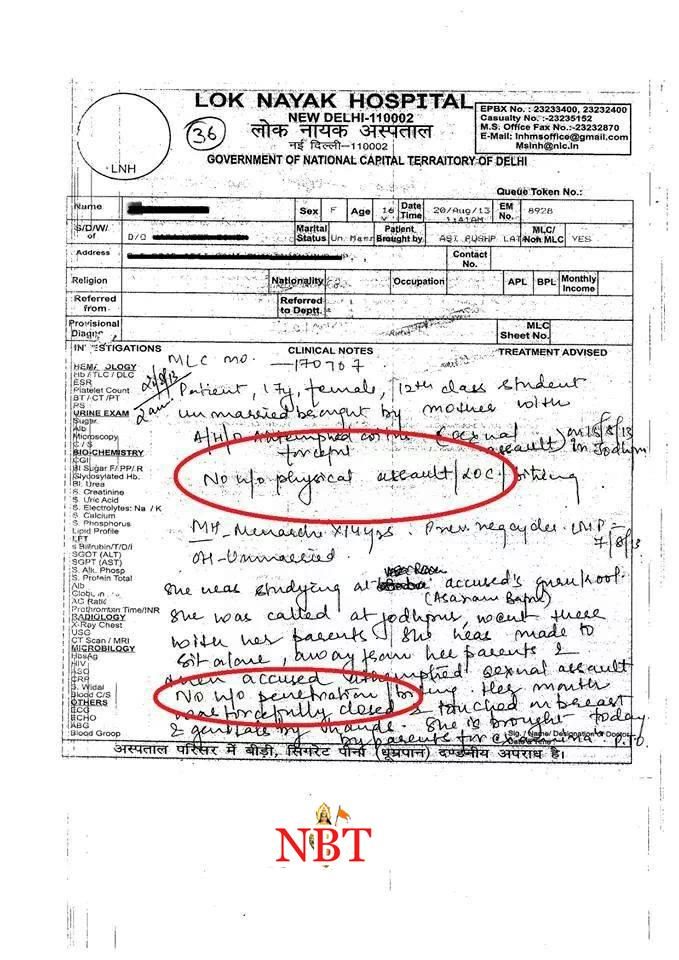 LOK NAYAK HOSPITAL
NEW DELHI-110002
लोक नायक अस्पताल
नई दिल्ली-110002
GOVERNMENT OF NATIONAL CAPITAL TERRAITORY OF DELHI
36
LNH
EPBX No. : 23233400, 23232400
Casualty No.:-23235152
M.S. Office Fax No.:-23232870
E-Mail: lnhmsoffice@gmail.com
Mslnh@nic.in
Queue Token No.:
Name Sex F Age 16 Y Date Time 20/Aug/13 1:41AM EM No. 8928
S/D/W/ of D/O Marital Status Un Marr Patient Brought by ASI PUSHP LAT MLC/ Non MLC YES
Address Contact No.
Religion Nationality Occupation APL BPL Monthly Income
Referred from Referred to Deptt.
Provisional Diagn MLC Sheet No.
INVESTIGATIONS CLINICAL NOTES TREATMENT ADVISED
HEMATOLOGY
Hb / TLC / DLC
ESR
Platelet Count
BT / CT / PT
PS
URINE EXAM
Sugar
Alb
Microscopy
C / S
BIO-CHEMISTRY
CGI
Bl Sugar F/ PP/ R
Glycosylated Hb.
Bl. Urea
S. Creatinine
S. Uric Acid
S. Electrolytes: Na / K
S. Calcium
S. Phosphorus
Lipid Profile
LFT
s Bilirubin/T/D/I
SGOT (ALT)
SGPT (AST)
S. Alk. Phosp
S. Protein Total
Alb
Globulin
AG Ratio
Prothromben Time/INR
RADIOLOGY
X-Ray Chest
USG
CT Scan / MRI
MICROBIOLOGY
HbsAg
HIV
ASO
CRP
S. Widal
Blood C/S
OTHERS
ECG
ECHO
ABG
Blood Group
MLC no. — 170767
2am Patient, 17y, female, 12th class student
unmarried brought by mother with
A/H/O Attempted (sexual assault) on 15/8/13 in Jodhpur
No h/o physical assault/LOC/biting
MH - Menarche x 14yrs. Prev. neg cycles LMP - 7/8/13
OH - Unmarried.
She was studying at accused's gurukool.
(Asaram Bapu)
She was called at jodhpur, went there
with her parents. She was made to
sit alone, away from her parents &
then accused attempted sexual assault
No h/o penetration/biting. Her mouth
was forcefully closed & touched on breast
& genitals by hands. She is brought today
by parents for examina P.T.O
Sig./Name/ Designation of Doctor
अस्पताल परिसर में बीड़ी, सिगरेट पीना (धूम्रपान) दण्डनीय अपराध है।
NBT